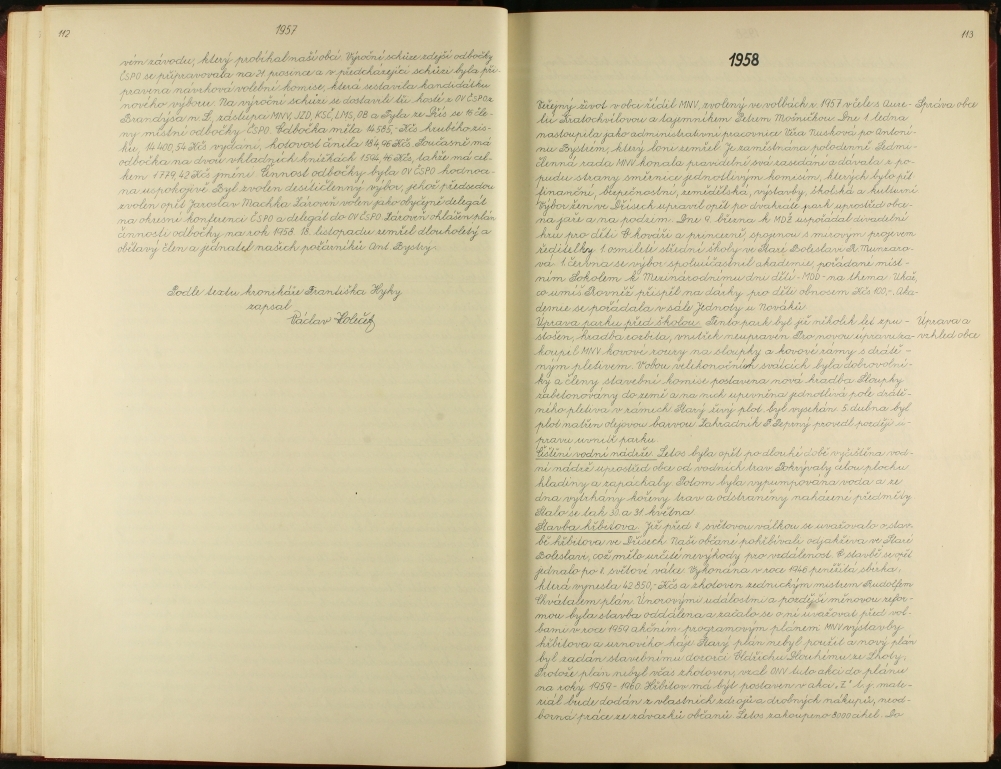 112
1957
vém závodu, který probíhal naší obcí. Výroční schůze zdejší odbočky
ČSPO se připravovala na 21. prosince a v předcházející schůzi byla při-
pravena návrhová volební komise, která sestavila kandidátku
nového výboru. Na výroční schůzi se dostavili tři hosté z OV ČSPO z
Brandýsa n. L., zástupci MNV, JZD, KSČ, LMS, OB a Fyla ze Dřís se 14 čle-
ny místní odbočky ČSPO. Odbočka měla 14.585,- Kčs hrubého zis-
ku, 14.400,54 Kčs vydání, hotovost činila 184,96 Kčs. Současně má
odbočka na dvou vkladních knížkách 1594,46 Kčs, takže má cel-
kem 1779,42 Kčs jmění. Činnost odbočky byla OV ČSPO hodnoce-
na uspokojivě. Byl zvolen desítičlenný výbor, jehož předsedou
zvolen opět Jaroslav Machka. Zároveň volen jako obyčejně delegát
na okresní konferenci ČSPO a delegát do OV ČSPO. Zároveň ohlášen plán
činnosti odbočky na rok 1958. 18. listopadu zemřel dlouholetý a
obětavý člen a jednatel našich požárníků Ant. Bystrý.
Podle textu kronikáře Františka Hyky
zapsal
Václav Holeček
113
1958
Veřejný život v obci řídil MNV, zvolený ve volbách z r. 1957 v čele s Aure-
Správa obce
lií Kratochvílovou a tajemníkem Petrem Mošničkou. Dne 1. ledna
nastoupila jako administrativní pracovnice Věra Rusková po Antoní-
nu Bystrém, který loni zemřel. Je zaměstnána polodenně. Sedmi-
členná rada MNV konala pravidelně svá zasedání a dávala z po-
pudu strany směrnice jednotlivým komisím, kterých bylo pět
finanční, bezpečnostní, zemědělská, výstavby, školská a kulturní
Výbor žen ve Dřísech upravil opět po dvakráte park uprostřed obce
na jaře a na podzim. Dne 9. března k MDŽ uspořádal divadelní
hru pro děti O kováři a princezně, spojenou s mírovým projevem
ředitelky 1. osmileté střední školy ve Staré Boleslavi R. Munzaro-
vá. 1. června se výbor spoluúčastnil akademie, pořádané míst-
ním Sokolem k Mezinárodnímu dni dětí - MDD - na thema. Ukaž,
co umíš. Rovněž přispěl na dárky pro děti obnosem Kčs 100,-. Aka-
demie se pořádala v sále Jednoty u Nováků.
Úprava parku před školou. Tento park byl již několik let zpu-
Úprava a
stošen, hradba rozbita, vnitřek neupraven. Pro novou úpravu za-
vzhled obce
koupil MNV kovové roury na sloupky a kovové rámy s drátě-
ným pletivem. V obou velikonočních svátcích byla dobrovolní-
ky a členy stavební komise postavena nová hradba. Sloupky
zabetonovány do země a na nich upevněna jednotlivá pole drátě-
ného pletiva v rámech. Starý živý plot byl vysekán. 5. dubna byl
plot natřen olejovou barvou. Zahradník P. Peprný provedl později ú-
pravu uvnitř parku.
Čištění vodní nádrže. Letos byla opět po dlouhé době vyčištěna vod-
ní nádrž uprostřed obce od vodních trav. Pokrývaly celou plochu
hladiny a zapáchaly. Potom byla vypumpována voda a ze
dna vytrhány kořeny trav a odstraněny naházené předměty.
Stalo se tak 30. a 31. května.
Stavba hřbitova. Již před 2. světovou válkou se uvažovalo o stav-
bě hřbitova ve Dřísech. Naši občané pohřbívali odjakživa ve Staré
Boleslavi, což mělo určité nevýhody pro vzdálenost. O stavbě se opět
jednalo po 2. světové válce. Vykonána v roce 1946 peněžitá sbírka,
která vynesla 42.850,- Kčs a zhotoven zednickým mistrem Rudolfem
Chvátalem plán. Únorovými událostmi a pozdější měnovou refor-
mou byla stavba oddálena a začalo se o ní uvažovat před vol-
bami v roce 1959 akčním programovým plánem MNV výstavby
hřbitova a urnového háje. Starý plán nebyl použit a nový plán
byl zadán stavebnímu dozorci Oldřichu Slouhému ze Lhoty.
Protože plán nebyl včas zhotoven, vzal ONV tuto akci do plánu
na roky 1959 - 1960. Hřbitov má být postaven v akci „Z" t. j. mate-
riál bude dodán z vlastních zdrojů a drobných nákupů, neod-
borná práce ze závazků občanů. Letos zakoupeno 8000 cihel. Do